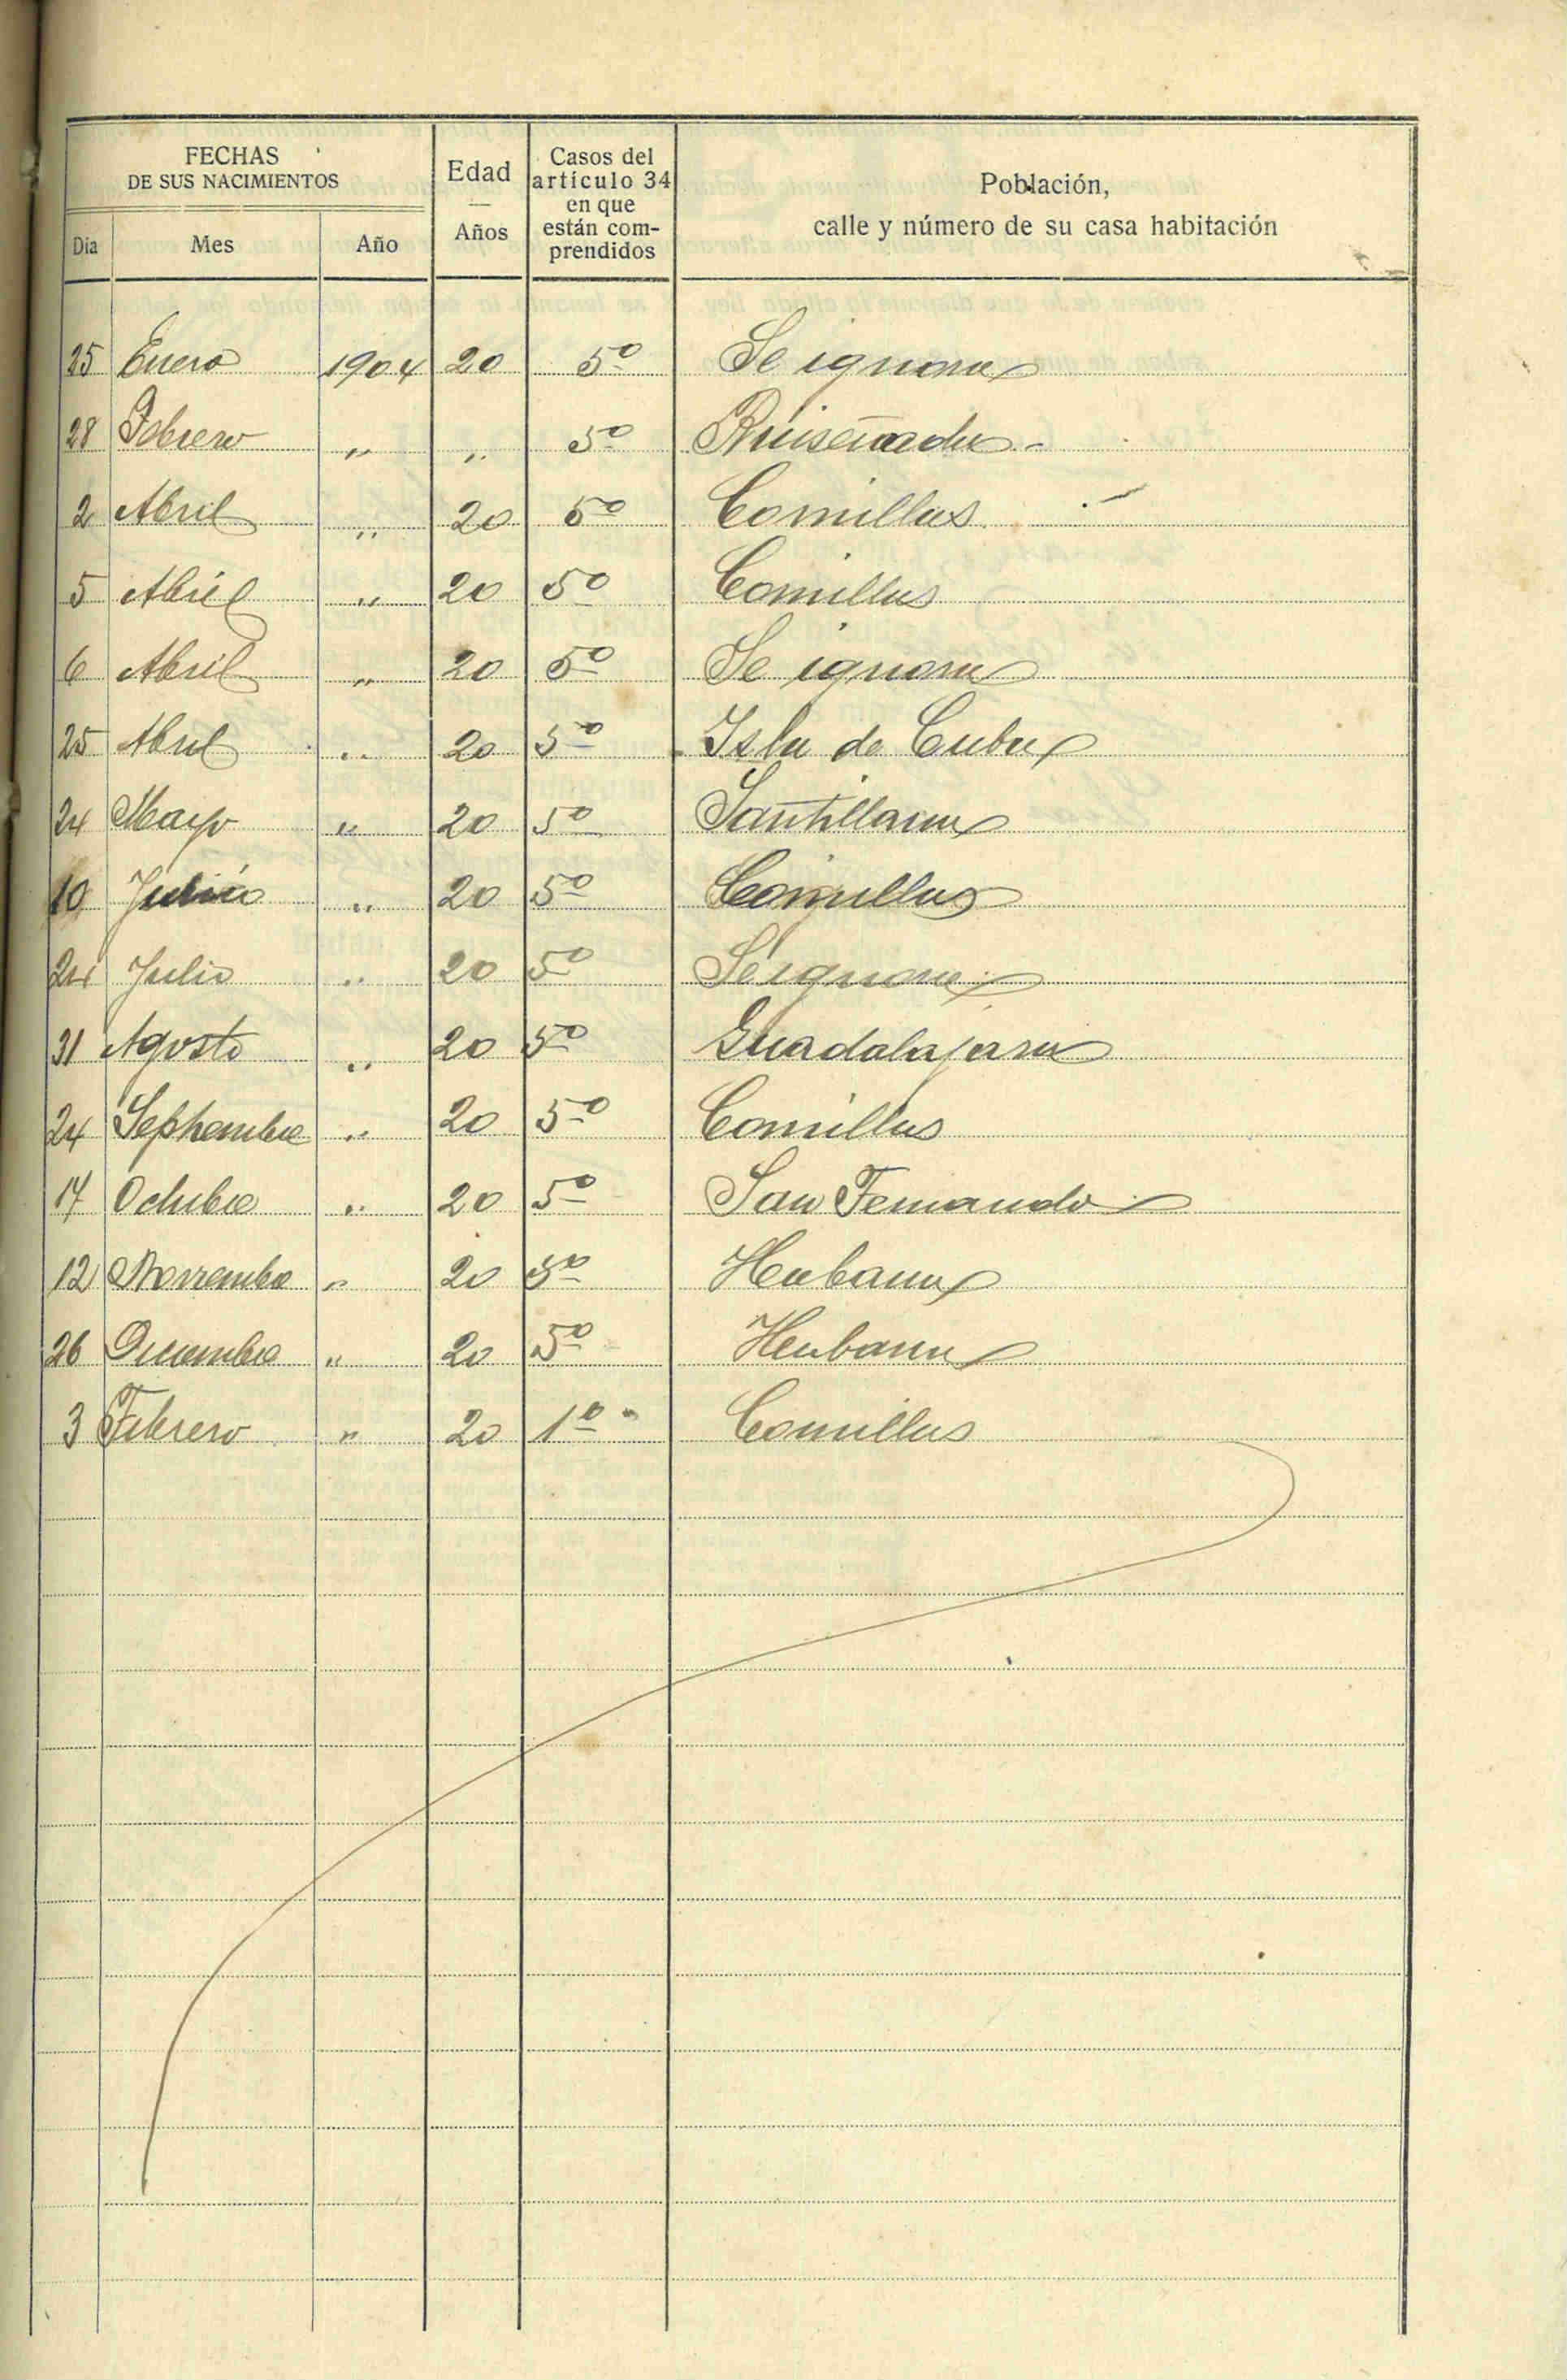 FECHAS DE SUS NACIMIENTOS
Día Mes Año
Edad — Años
Casos del artículo 34 en que están comprendidos
Población, calle y número de su casa habitación
25 Enero 1904 20 5º Se ignora
28 Febrero " " 5º Ruiseñada
2 Abril " 20 5º Comillas
5 Abril " 20 5º Comillas
6 Abril " 20 5º Se ignora
25 Abril " 20 5º Isla de Cuba
24 Mayo " 20 5º Santillana
10 " 20 5º Comillas
24 Julio " 20 5º Se ignora
31 Agosto " 20 5º Guadalajara
24 Septiembre " 20 5º Comillas
14 Octubre " 20 5º San Fernando
12 Noviembre " 20 5º Habana
26 Diciembre " 20 5º Habana
3 Febrero " 20 1º Comillas